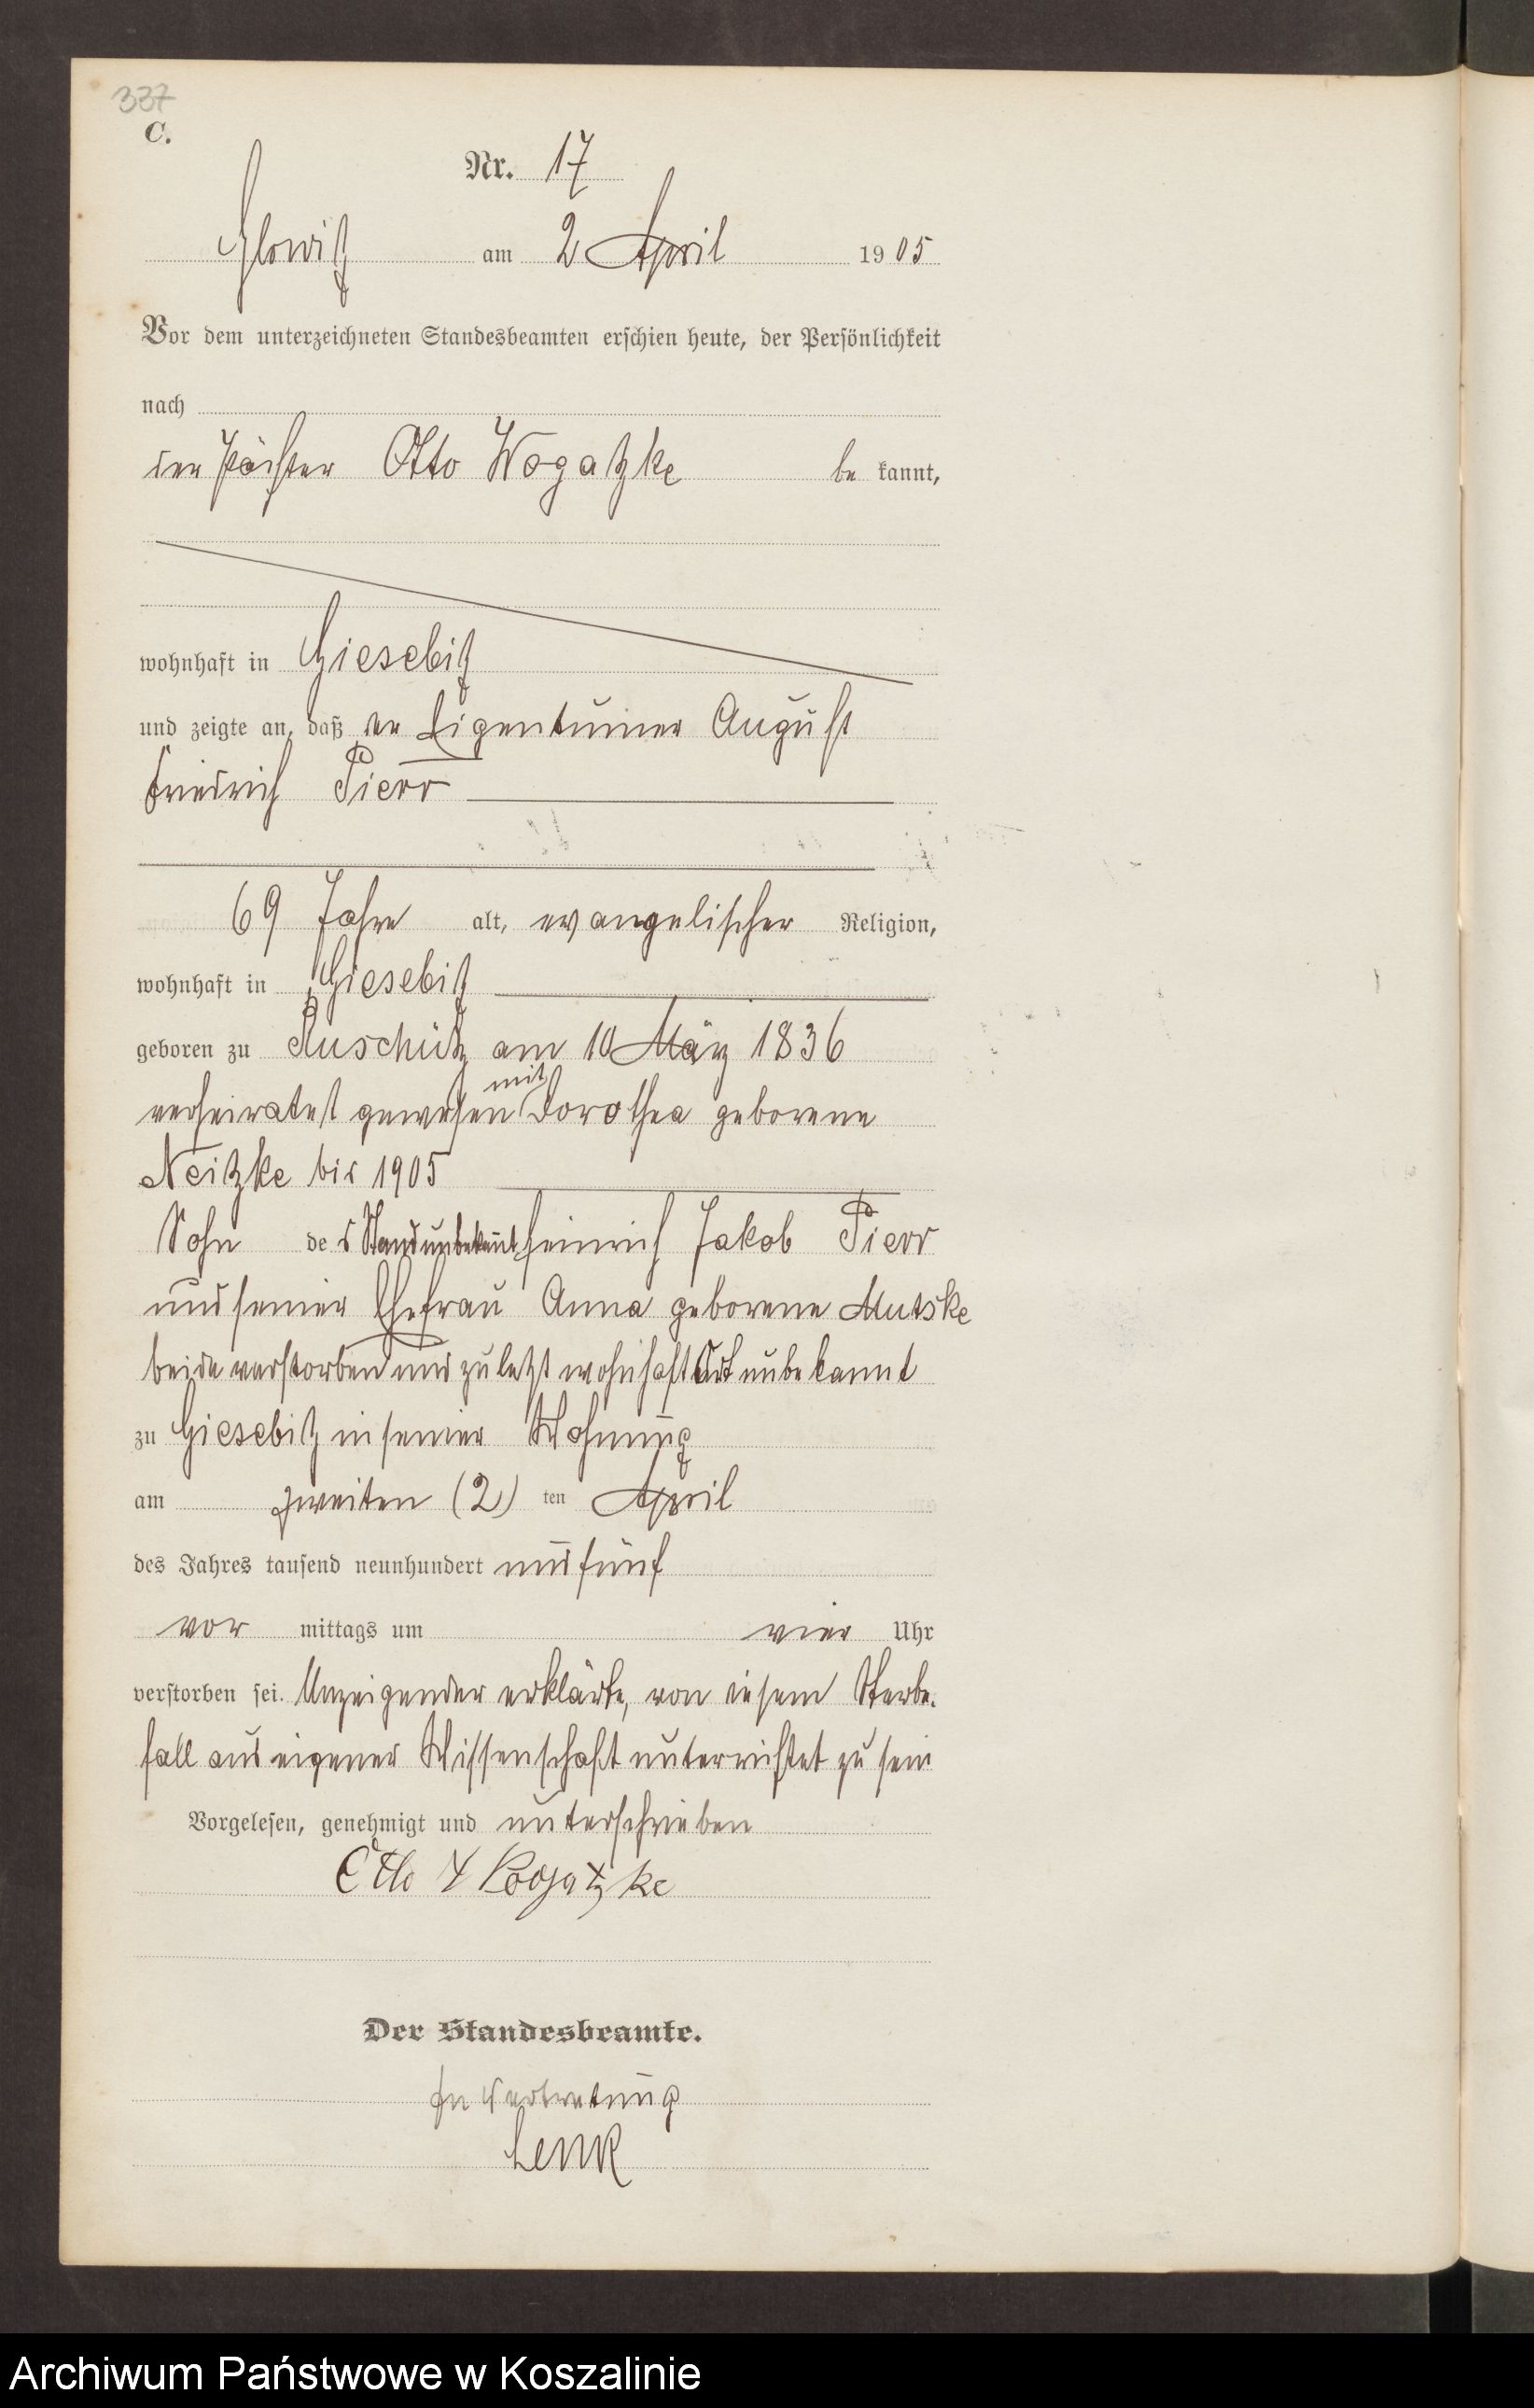 337
C.
Nr. 17
Glowitz am 2 April 1905
Vor dem unterzeichneten Standesbeamten erschien heute, der Persönlichkeit
nach
der Pächter Otto Wogatzke be kannt,
wohnhaft in Giesebitz
und zeigte an, daß der Eigentümer August
Friedrich Pierr
69 Jahre alt, evangelischer Religion,
wohnhaft in Giesebitz
geboren zu Ruschütz am 10 März 1836
verheiratet gewesen mit Dorothea geborene
Neitzke bis 1905
Sohn des Stand unbekannt Heinrich Jakob Pierr
und seiner Ehefrau Anna geborene Mutske
beide verstorben und zuletzt wohnhaft Ort unbekannt
zu Giesebitz in seiner Wohnung
am zweiten (2) ten April
des Jahres tausend neunhundert und fünf
vor mittags um vier Uhr
verstorben sei. Anzeigender erklärte, von diesem Sterbe-
fall aus eigener Wissenschaft unterrichtet zu sein
Vorgelesen, genehmigt und unterschrieben
Otto Wogatzke
Der Standesbeamte.
In Vertretung
Lenk
Archiwum Państwowe w Koszalinie